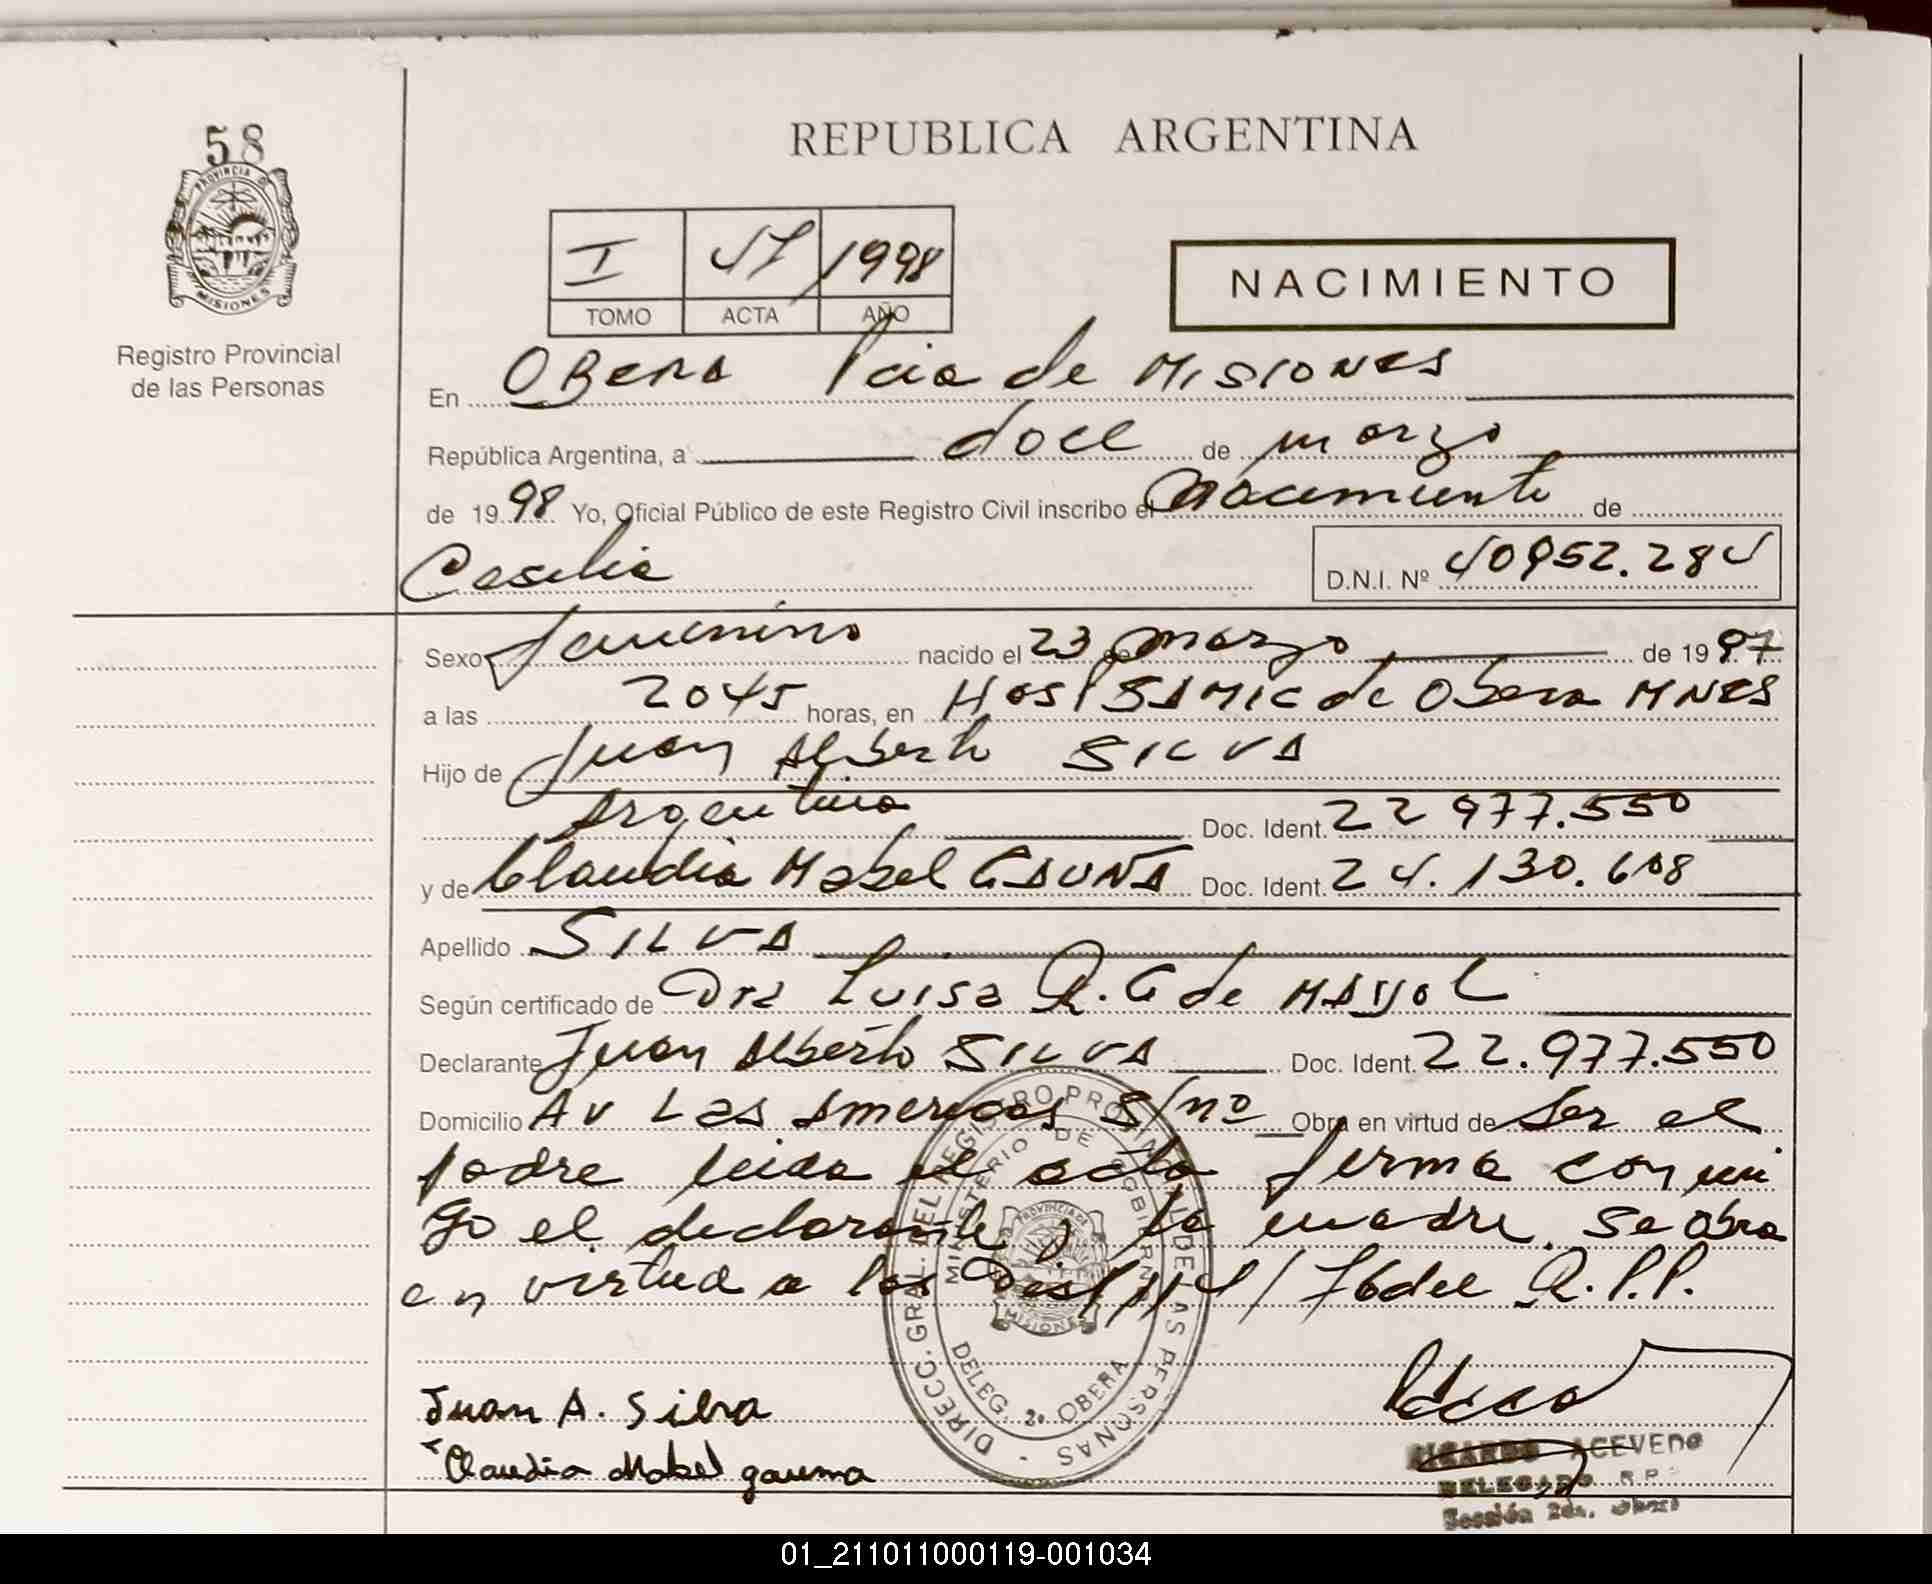 58
REPUBLICA ARGENTINA
PROVINCIA DE
MISIONES
Registro Provincial
de las Personas
I 47/1998
TOMO ACTA AÑO
NACIMIENTO
En OBERA Pcia de MISIONES
República Argentina, a doce de marzo
de 1998 Yo, Oficial Público de este Registro Civil inscribo el Nacimiento de
Cesilia D.N.I. Nº 40952.284
Sexo femenino nacido el 23 de marzo de 1997
a las 2045 horas, en Hosp SAMIC de Obera MNES
Hijo de Juan Alberto SILVA
Argentina Doc. Ident. 22 977.550
y de Claudia Mabel GAUNA Doc. Ident. 24.130.608
Apellido SILVA
Según certificado de Dra Luisa R. G de MAYOL
Declarante Juan Alberto SILVA Doc. Ident. 22.977.550
Domicilio Av Las Americas S/nº Obra en virtud de Ser el
padre leida el acta firma conmi
go el declarante y la madre. Se obra
en virtud a las Disp 114/76 del R.P.P.
DIRECC. GRAL. DEL REGISTRO PROVINCIAL DE LAS PERSONAS
MINISTERIO DE GOBIERNO
PROVINCIA DE
MISIONES
DELEG. 2º OBERA
Juan A. Silva
Claudia Mabel gauna
RICARDO ACEVEDO
DELEGADO R.P.
Sección 2da. Oberá
01_211011000119-001034